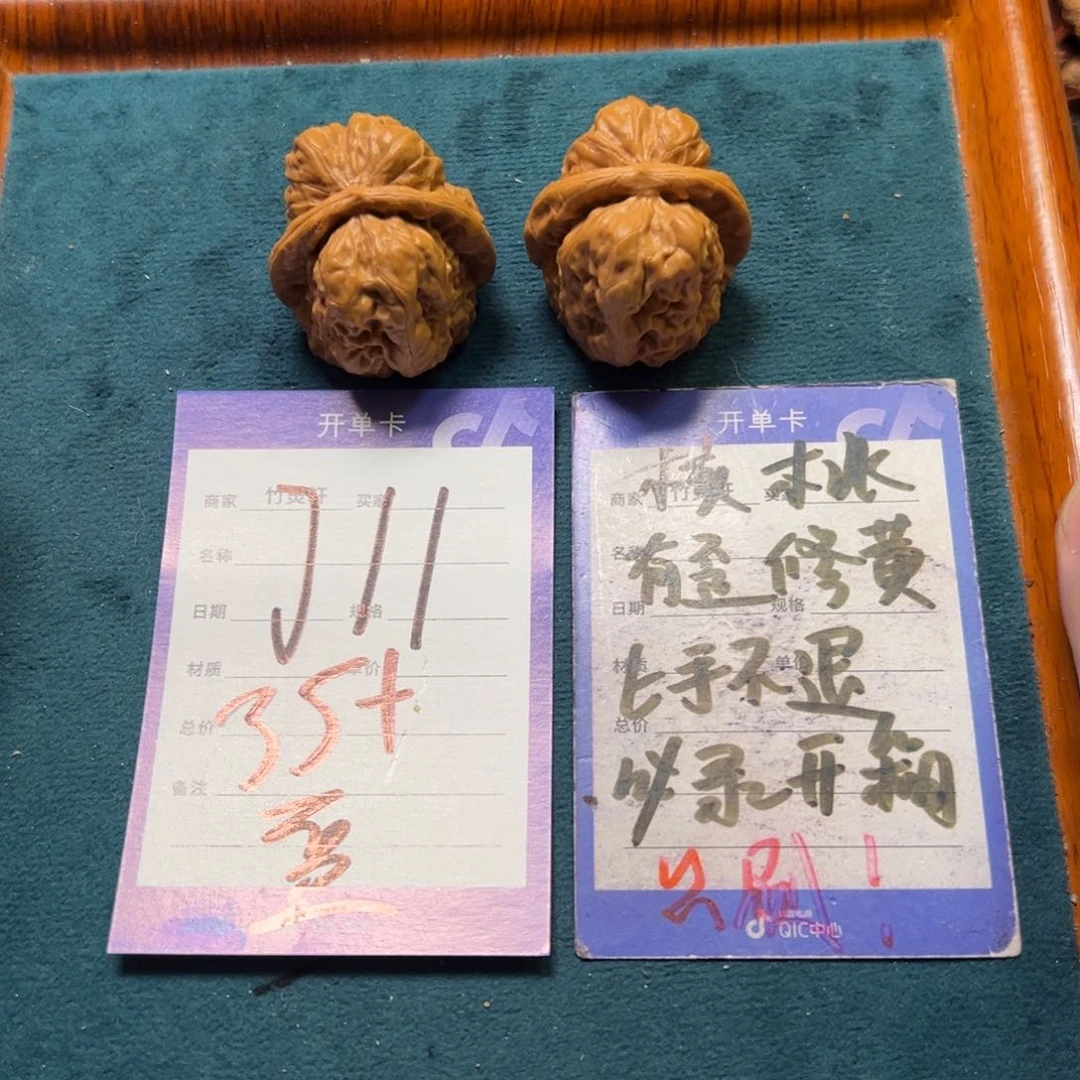 开单卡
商家 竹灵轩 买家
名称
J11
日期 规格
材质 单价
35+
总价
备注
开单卡
核桃
商家 竹灵轩 买家
有歪修黄
名称
日期 规格
上手不退
材质 单价
总价
必录开箱
只刷!
抖音电商
QIC中心